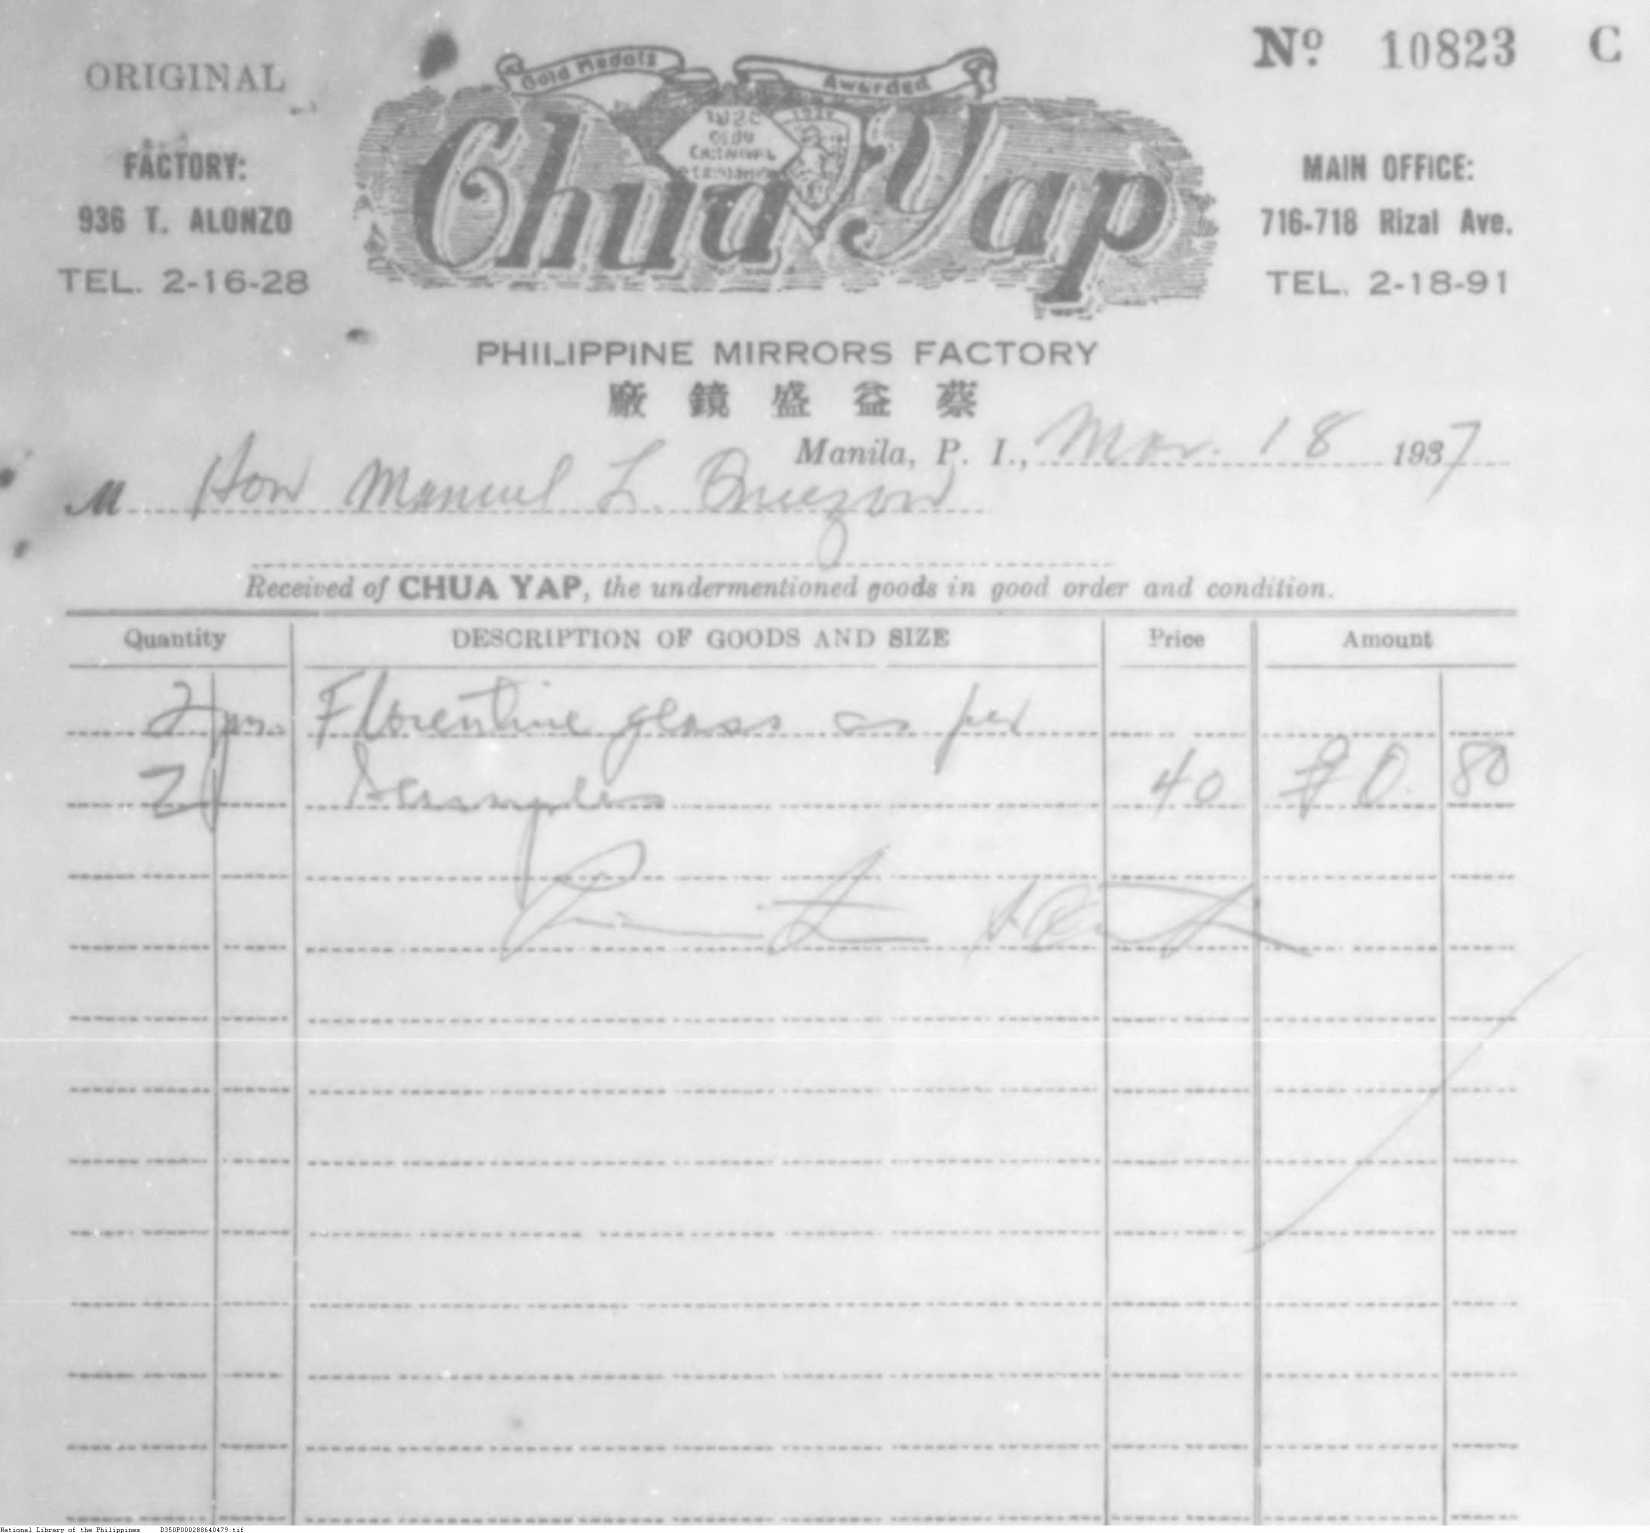 ORIGINAL
Nº 10823 C
Gold Medals Awarded
FACTORY:
936 T. ALONZO
TEL. 2-16-28
Chua Yap
MAIN OFFICE:
716-718 Rizal Ave.
TEL. 2-18-91
PHILIPPINE MIRRORS FACTORY
廠鏡盛益蔡
Manila, P. I., Mar. 18 1937
M Hon Manuel L. Quezon
Received of CHUA YAP, the undermentioned goods in good order and condition.
Quantity DESCRIPTION OF GOODS AND SIZE Price Amount
2 Florentine glass as per
2 Samples 40 ₱0. 80
National Library of the Philippines